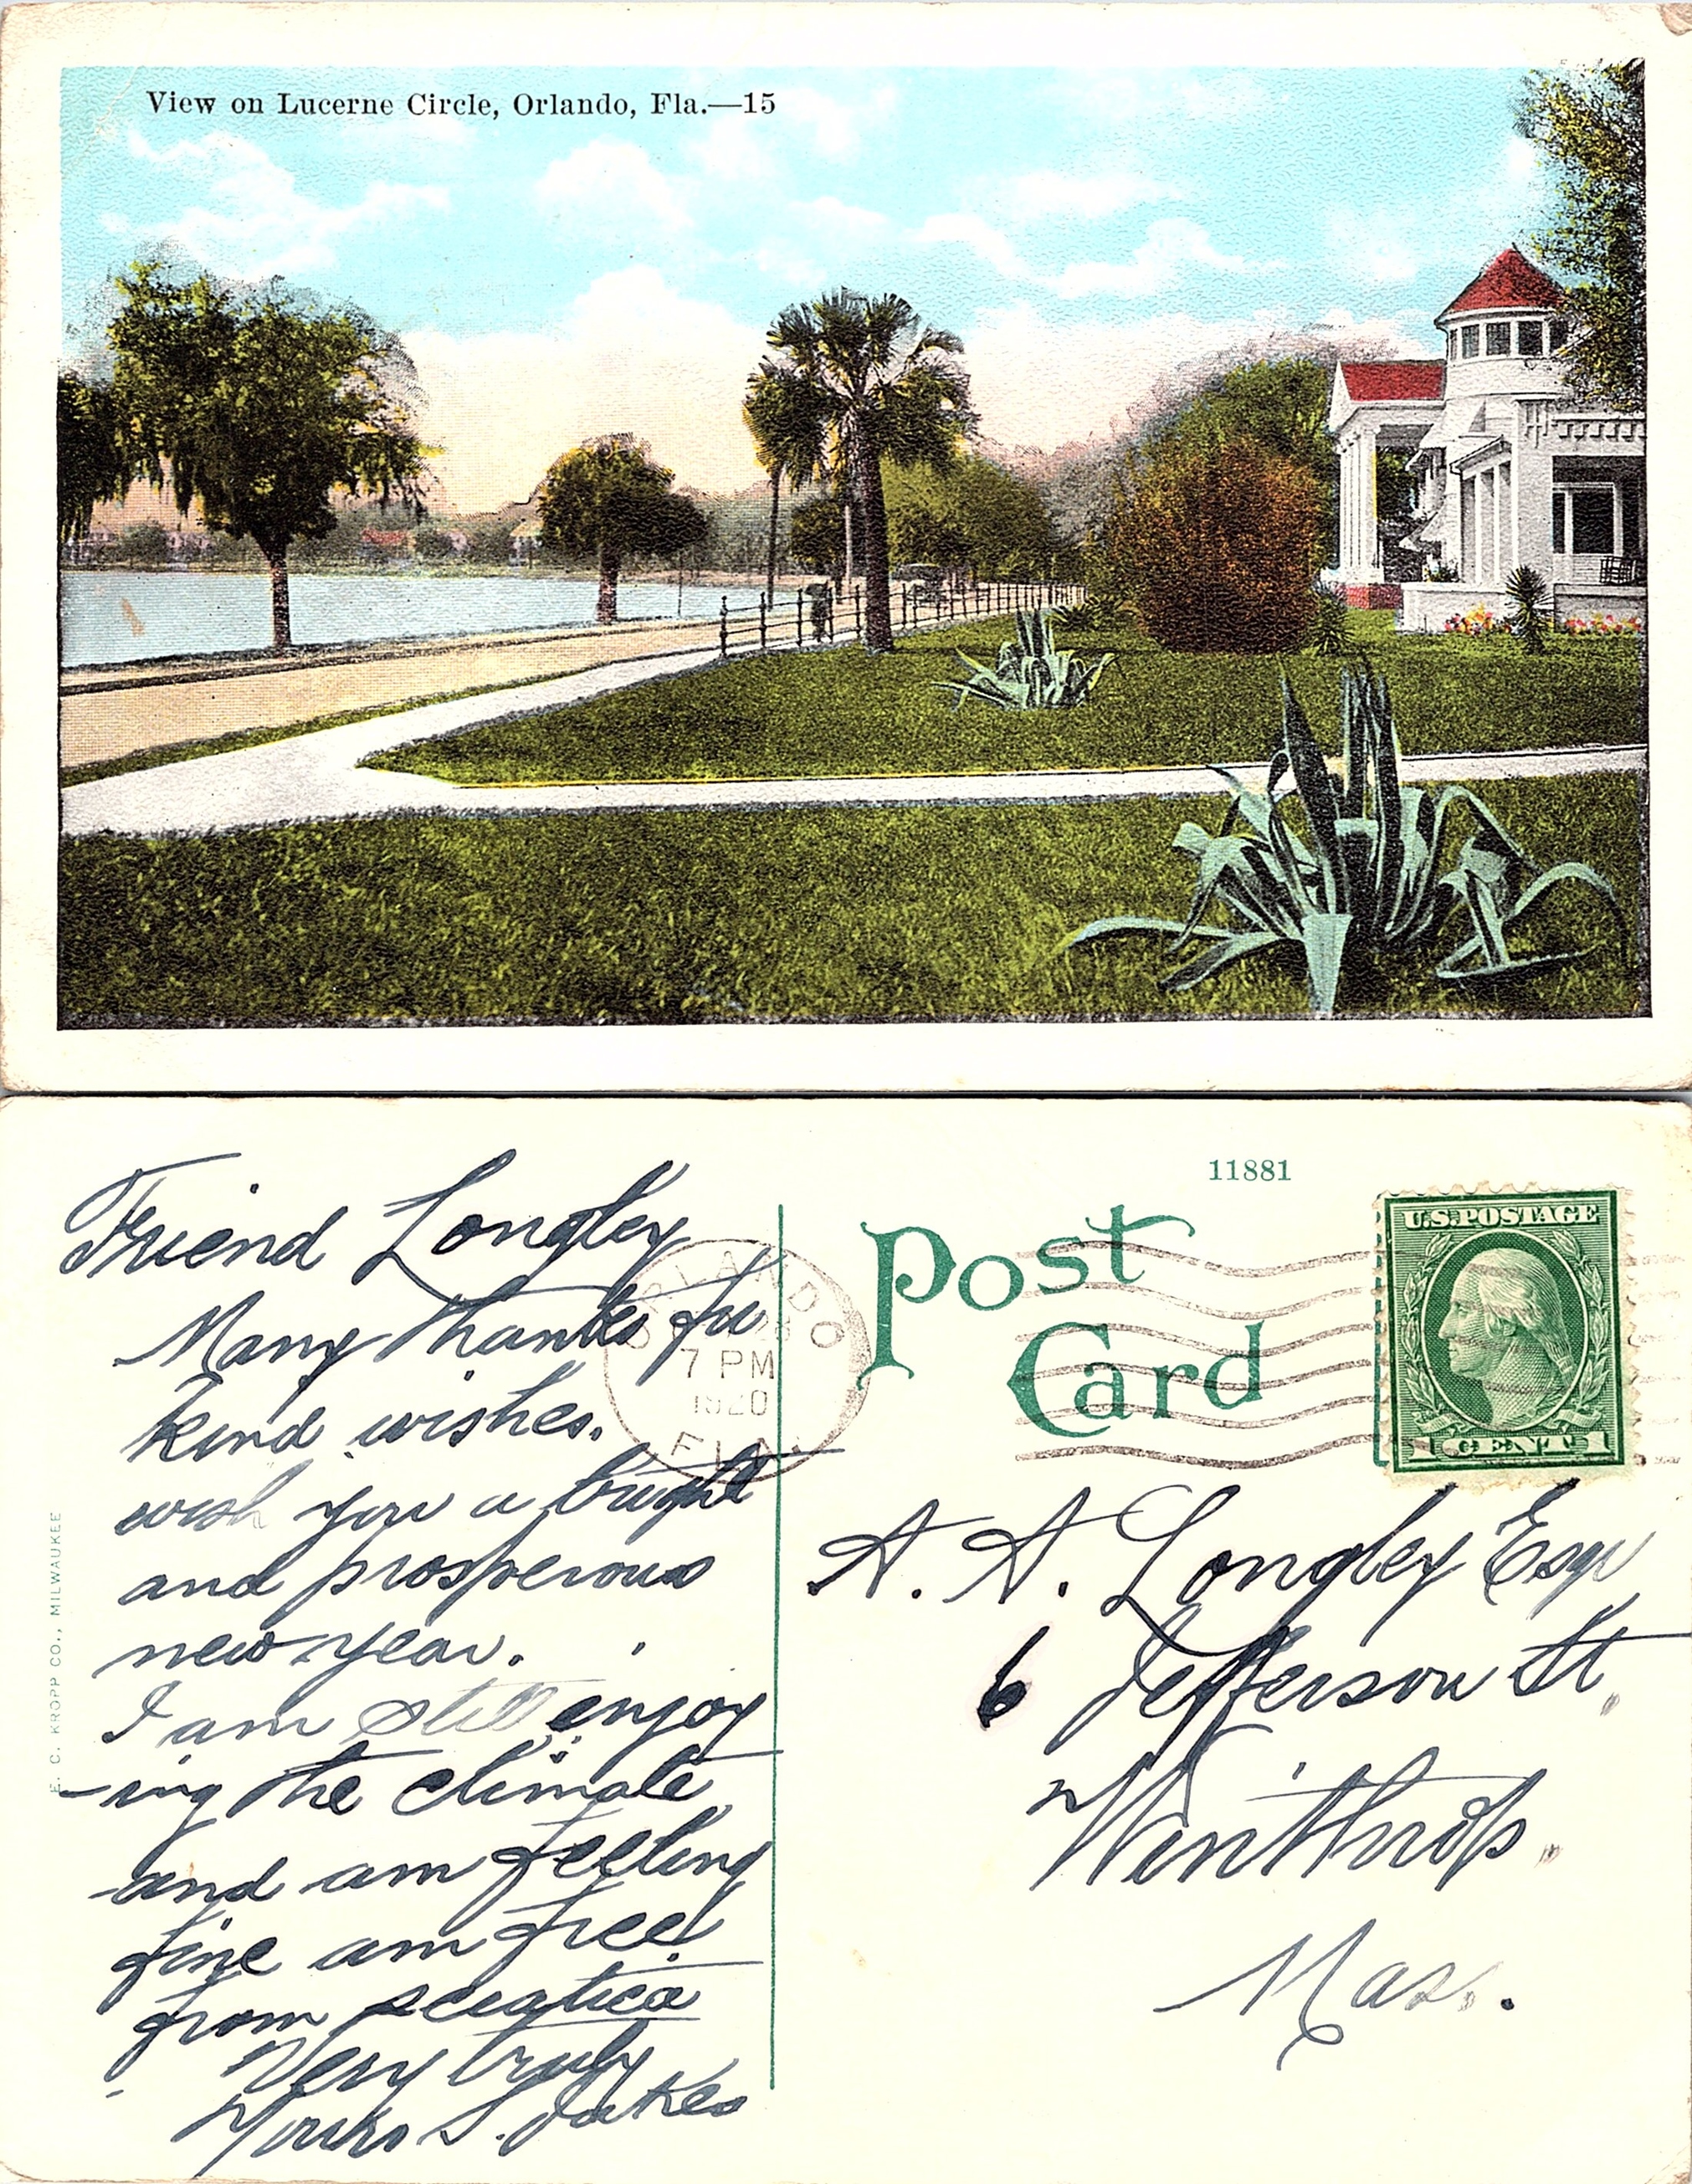 View on Lucerne Circle, Orlando, Fla.—15
Friend Longley
Many thanks for
kind wishes.
wish you a bright
and prosperous
new year.
I am still enjoy
-ing the climate
and am feeling
fine am free
from sciatica
Very truly
Yours S.
E. C. KROPP CO., MILWAUKEE
11881
Post
Card
ORLANDO
28
7 PM
1920
FLA.
U.S. POSTAGE
1 CENT 1
A. A. Longley Esqr
6 Jefferson St.
Winthrop.
Mas.